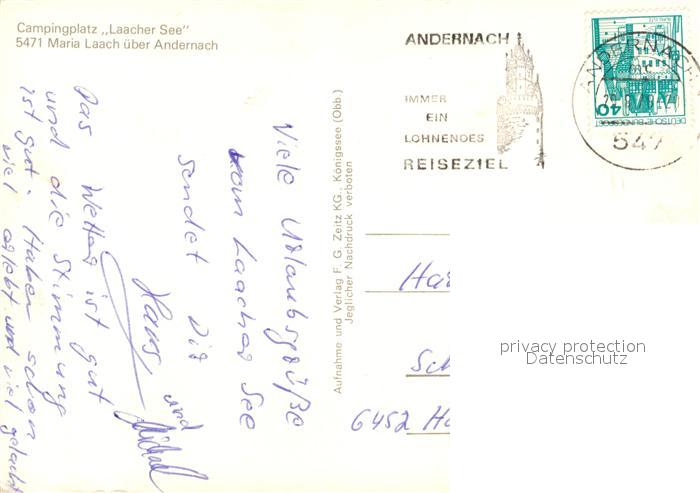 Campingplatz „Laacher See"
5471 Maria Laach über Andernach
ANDERNACH
IMMER
EIN
LOHNENDES
REISEZIEL
ANDERNACH
547
40
DEUTSCHE BUNDESPOST
Viele Urlaubsgrüße
vom Laacher See
sendet Dir
Hans und
Michael
Das Wetter ist gut
und die Stimmung
ist gut. Haben schon
viel erlebt und viel gelacht
Aufnahme und Verlag F. G. Zeitz KG., Königssee (Obb.)
Jeglicher Nachdruck verboten
Har
Sch
6452 Ha
privacy protection
Datenschutz